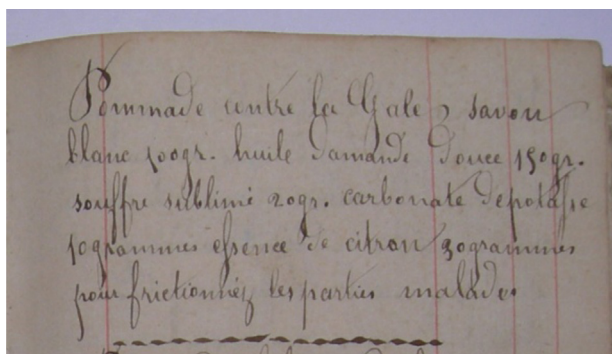 Pommade contre la Gale, savon
blanc 100gr. huile damande douce 150gr.
souffre sublimé 20gr. carbonate depotasse
10grammes essence de citron 30grammes
pour frictionnéz lesparties malades